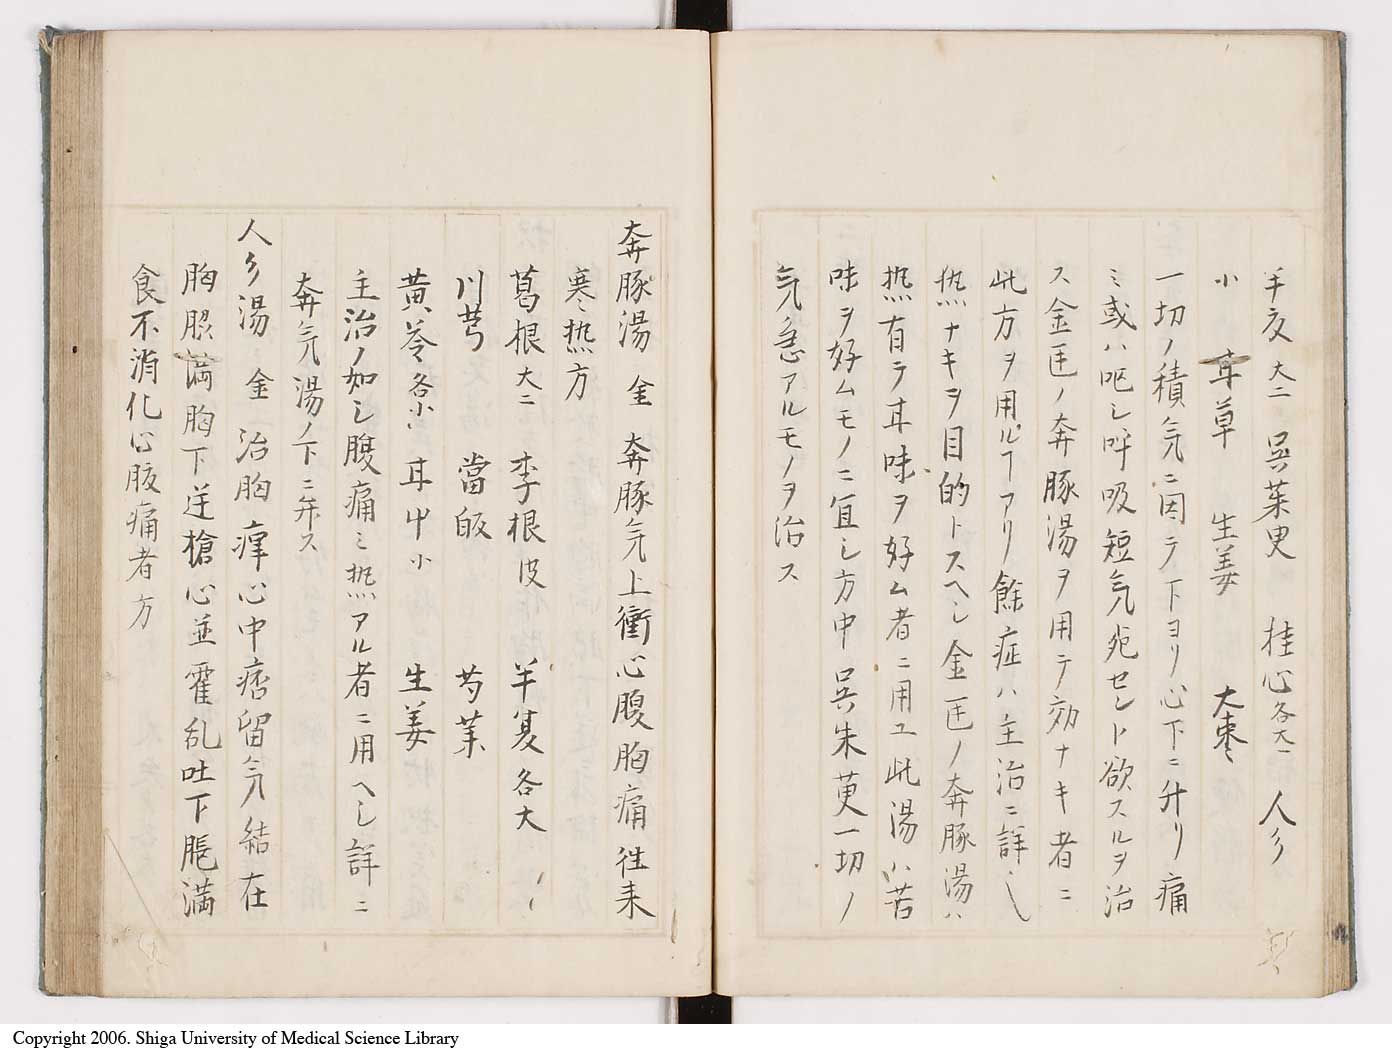 半夏大二 呉茱萸 桂心各大一 人参
小 甘草 生姜 大棗
一切ノ積気ニ因テ下ヨリ心下ニ升リ痛
ミ或ハ呕シ呼吸短気死セント欲スルヲ治
ス金匡ノ奔豚湯ヲ用テ効ナキ者ニ
此方ヲ用ルヿアリ餘症ハ主治ニ詳シ
熱ナキヲ目的トスヘシ金匡ノ奔豚湯ハ
熱有テ甘味ヲ好ム者ニ用ユ此湯ハ苦
味ヲ好ムモノニ宜シ方中呉朱萸一切ノ
気急アルモノヲ治ス
奔豚湯 金 奔豚気上衝心腹胸痛往来
寒熱方
葛根大二 李根皮 半夏各大
川芎 當皈 芍薬
黄芩各小 甘艸小 生姜
主治ノ如シ腹痛ミ熱アル者ニ用ヘシ詳ニ
奔気湯ノ下ニ弁ス
人参湯 金 治胸痺心中痞留気結在
胸脹満胸下逆槍心並霍乱吐下脹満
食不消化心腹痛者方
Copyright 2006. Shiga University of Medical Science Library